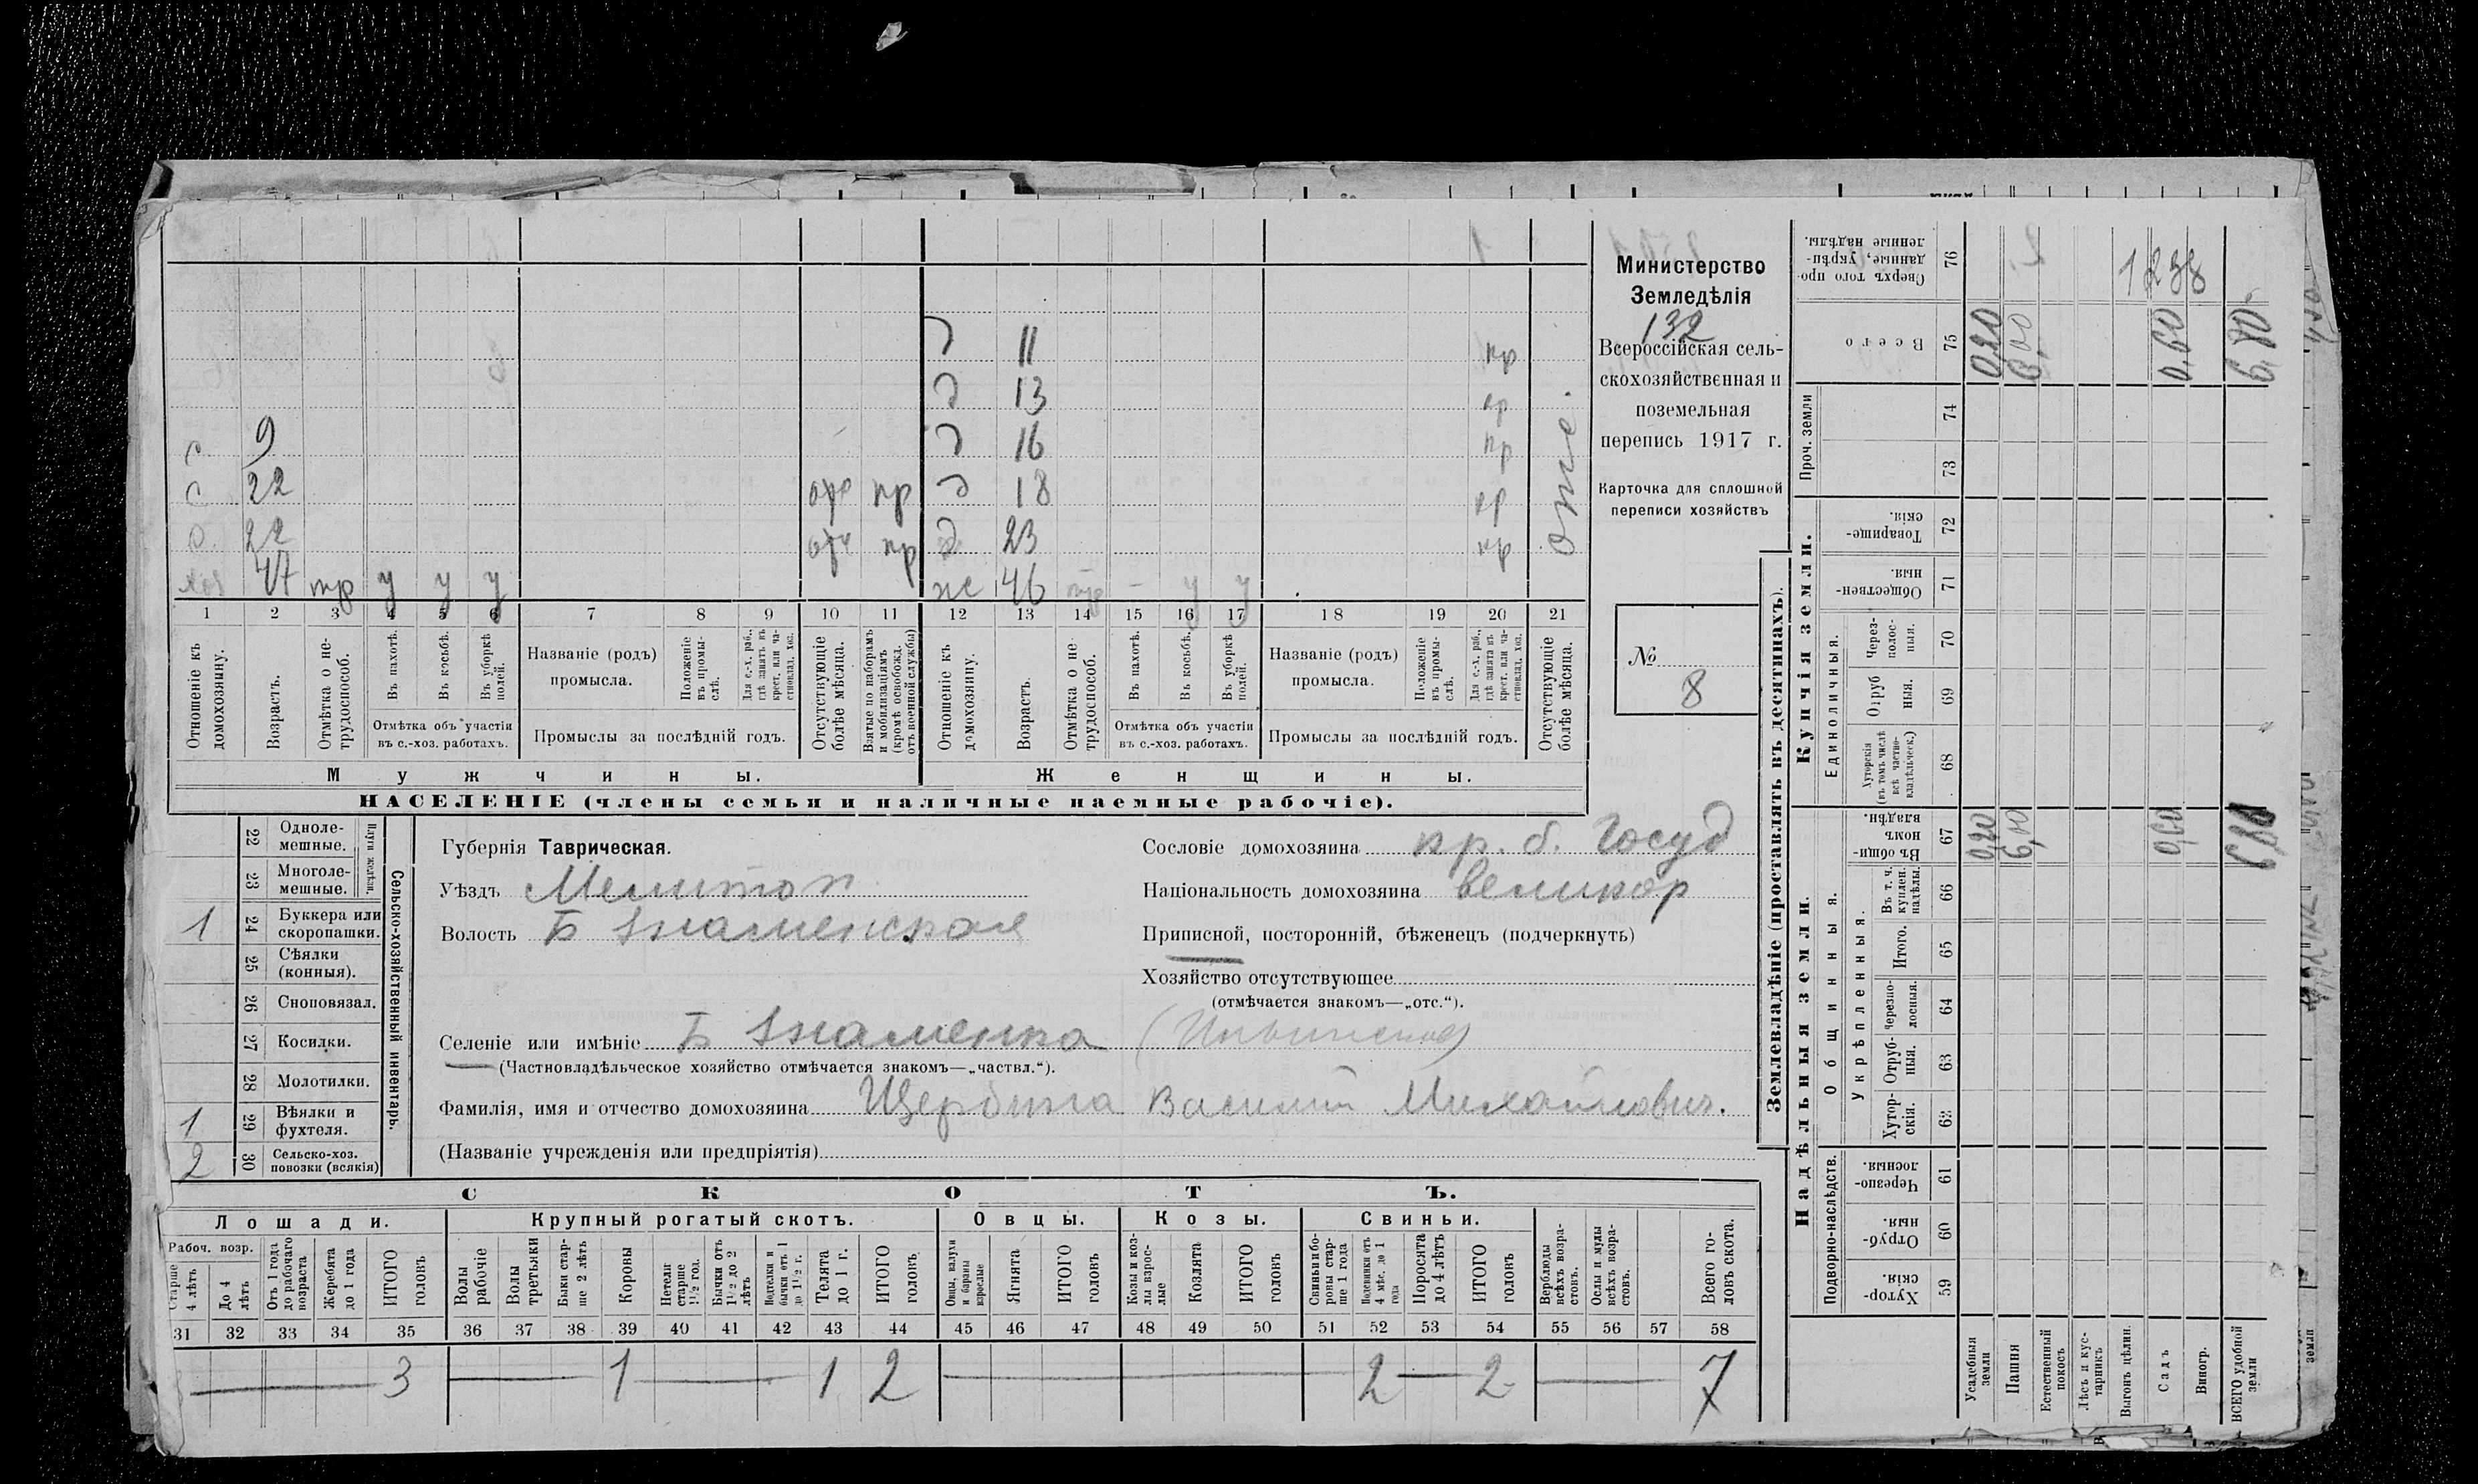 11 пр
13 пр
9 16 пр
с 22 пр 18 пр
22 пр 23 пр
47 тр у у у ж 46 у у
1 2 3 4 5 6 7 8 9 10 11 12 13 14 15 16 17 18 19 20 21
Отношеніе къ домохозяину.
Возрастъ.
Отмѣтка о не-трудоспособ.
Въ пахотѣ.
Въ косьбѣ.
Въ уборкѣ полей.
Отмѣтка объ участіи
въ с.-хоз. работахъ.
Названіе (родъ)
промысла.
Положеніе въ промы-слѣ.
Для с.-х. раб., гдѣ занятъ въ крест. или ча-стновлад. хоз.
Промыслы за послѣдній годъ.
Отсутствующіе болѣе мѣсяца.
Взятые по наборамъ и мобилизаціямъ (кромѣ освобожд. отъ военной службы)
Отношеніе къ домохозяину.
Возрастъ.
Отмѣтка о не трудоспособ.
Въ пахотѣ.
Въ косьбѣ.
Въ уборкѣ полей.
Отмѣтка объ участіи
въ с.-хоз. работахъ.
Названіе (родъ)
промысла.
Положеніе въ промы-слѣ.
Для с.-х. раб., гдѣ занята въ крест. или ча-стновлад. хоз.
Промыслы за послѣдній годъ.
Отсутствующіе болѣе мѣсяца.
Мужчины.
Женщины.
НАСЕЛЕНІЕ (члены семьи и наличные наемные рабочіе).
Министерство
Земледѣлія
132
Всероссійская сель-
скохозяйственная и
поземельная
перепись 1917 г.
Карточка для сплошной
переписи хозяйствъ
№
8
22 Одноле-мешные.
23 Многоле-мешные.
Плуги желѣзн.
1 24 Буккера или скоропашки.
25 Сѣялки (конныя).
26 Сноповязал.
27 Косилки.
28 Молотилки.
1 29 Вѣялки и фухтеля.
2 30 Сельско-хоз. повозки (всякія)
Сельско-хозяйственный инвентарь.
Губернія Таврическая.
Уѣздъ Мелитоп
Волость Б Знаменская
Селеніе или имѣніе Б Знаменка
(Частновладѣльческое хозяйство отмѣчается знакомъ—„частвл.“).
Фамилія, имя и отчество домохозяина Щербина Василий Михайлович.
(Названіе учрежденія или предпріятія)
Сословіе домохозяина кр. б. Госуд
Національность домохозяина великор
Приписной, посторонній, бѣженецъ (подчеркнуть)
Хозяйство отсутствующее
(отмѣчается знакомъ—„отс.“).
СКОТЪ.
Лошади. Крупный рогатый скотъ. Овцы. Козы. Свиньи.
Рабоч. возр.
Старше 4 лѣтъ
До 4 лѣтъ
Отъ 1 года до рабочаго возраста
Жеребята до 1 года
ИТОГО головъ
Волы рабочіе
Волы третьяки
Быки стар-ше 2 лѣтъ
Коровы
Нетели старше 1½ год.
Бычки отъ 1½ до 2 лѣтъ
Подтелки и бычки отъ 1 до 1½ г.
Телята до 1 г.
ИТОГО головъ
Овцы, валухи и бараны взрослые
Ягнята
ИТОГО головъ
Козы и коз-лы взрос-лые
Козлята
ИТОГО головъ
Свиньи и бо-ровы стар-ше 1 года
Подсвинки отъ 4 мѣс. до 1 года
Поросята до 4 лѣтъ
ИТОГО головъ
Верблюды всѣхъ возра-стовъ.
Ослы и мулы всѣхъ возра-стовъ.
Всего го-ловъ скота.
31 32 33 34 35 36 37 38 39 40 41 42 43 44 45 46 47 48 49 50 51 52 53 54 55 56 57 58
3 1 1 2 2 2 7
Землевладѣніе (проставлять въ десятинахъ).
Надѣльныя земли.
Купчія земли.
Проч. земли
Подворно-наслѣдств.
Общинныя.
Укрѣпленныя.
Единоличныя.
Хутор-скія. 59
Отруб-ныя. 60
Черезпо-лосныя. 61
Хутор-скія. 62
Отруб-ныя. 63
Черезпо-лосныя. 64
Итого. 65
Въ т. ч. куплен. надѣлы. 66
Въ общи-номъ владѣн. 67
Хуторскія (въ томъ числѣ всѣ частно-владѣльческ.) 68
Отруб ныя. 69
Через-полос-ныя. 70
Обществен-ныя. 71
Товарище-скія. 72
73
74
Всего 75
Сверхъ того про-данные, укрѣп-ленные надѣлы. 76
Усадебныя земли 0,20 0,20
Пашня 6,00 6,00
Естественный покосъ
Лѣсъ и кус-тарникъ
Выгонъ цѣлин.
Садъ 0,60 0,60
Виногр.
ВСЕГО удобной земли 6,80 6,80
1238
земли